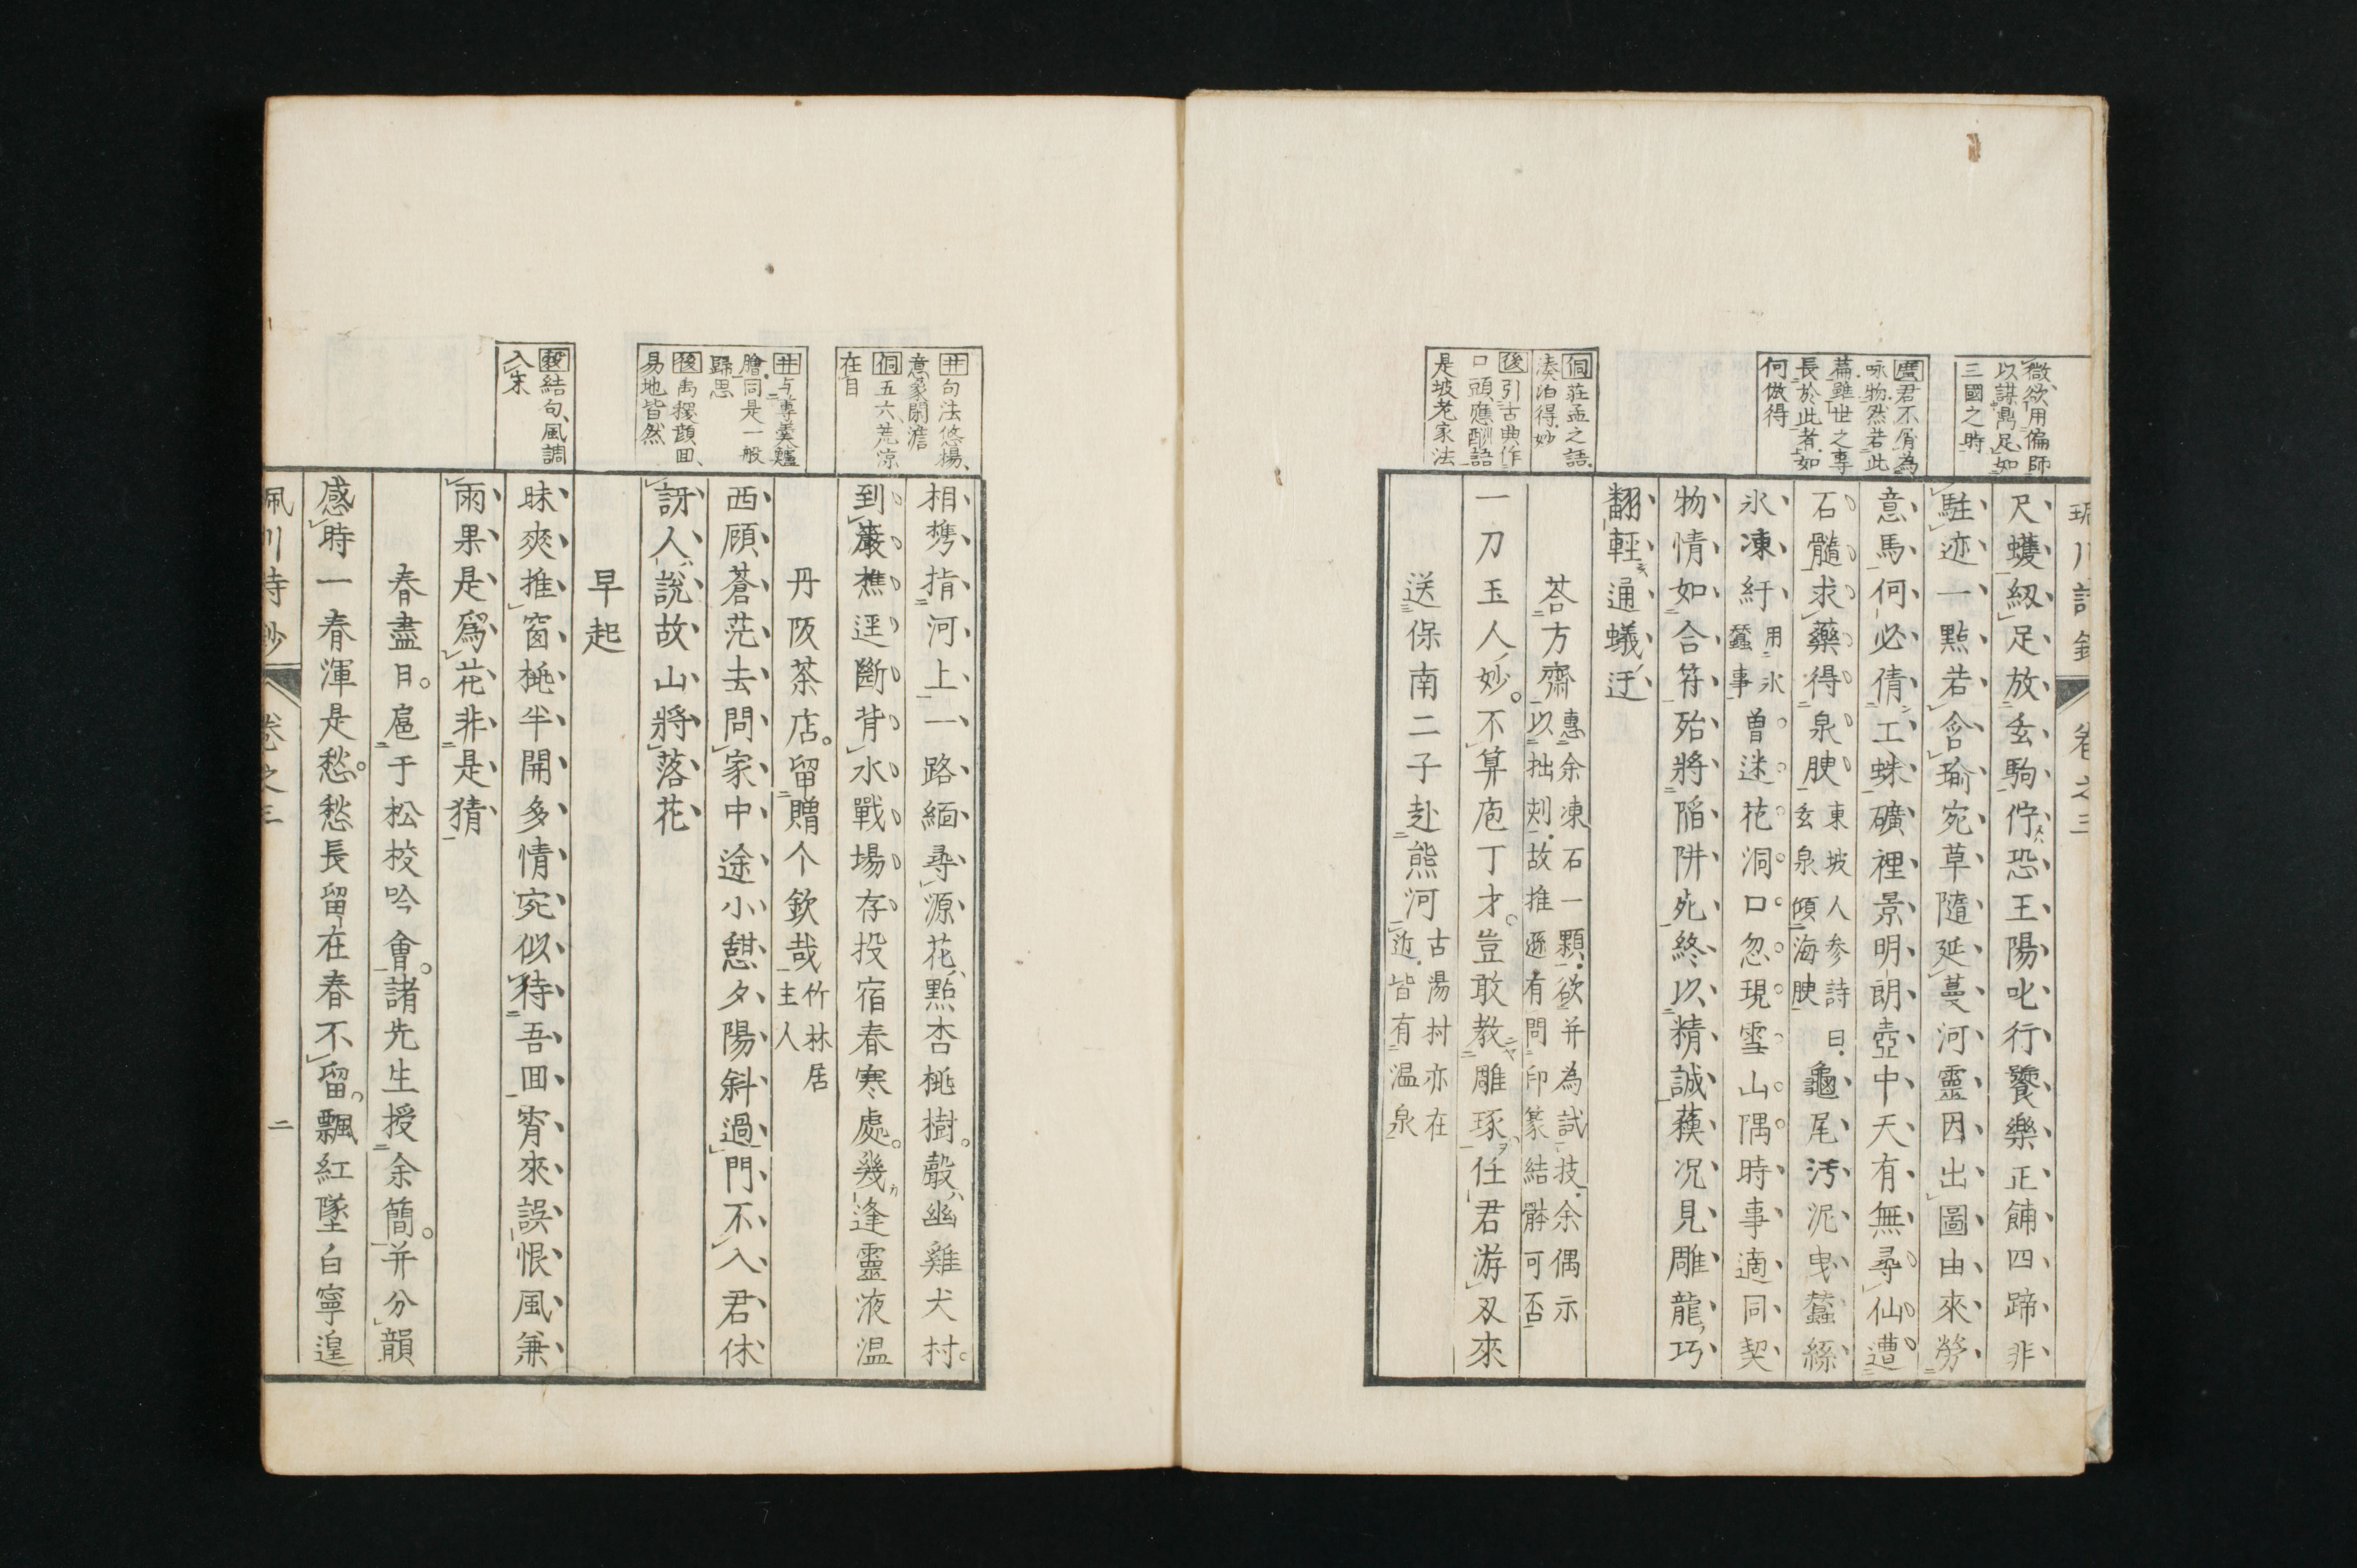 微欲用偏師
以謀鼎足如
三國之時
廣君不屑為
咏物然若此
篇雖世之專
長於此者如
何做得
侗莊孟之語
湊泊得妙
後引古典作
口頭應酬語
是坡老家法
尺蠖紉足放玄駒佇恐王陽叱行饕樂正餔四蹄非
駐迹一點若含瑜宛草隨延蔓河靈因出圖由來勞
意馬何必倩工蛛礦裡景明朗壺中天有無尋仙遭
石髓求藥得泉腴東坡人参詩曰龜尾汚泥曳蠶絲
玄泉傾海腴
氷凍紆用氷曾迷花洞口忽現雪山隅時事適同契
蠶事
物情如合符殆將陷阱死終以精誠蘓况見雕龍巧
翻輕通蟻迂
荅方齋惠余凍石一顆欲并為試技余偶示
以拙刻故推遜有問印篆結骵可否
一刀玉人妙不算庖丁才豈敢教雕琢任君游刃來
送保南二子赴熊河古湯村亦在
近皆有温泉
卷之三
井句法悠揚
意象閑澹
侗五六荒凉
在目
井与蓴羮鱸
膾同是一般
歸思
後禹稷顔回
易地皆然
結句風調
入宋
相携指河上一路緬尋源花點杏桃樹聲幽雞犬村
到巖樵逕斷背水戰場存投宿春寒處幾逢靈液温
丹阪茶店留贈个欽哉竹林居
主人
西顧蒼茫去問家中途小憇夕陽斜過門不入君休
訝人說故山將落花
早起
昧爽推窗桃半開多情宛似待吾回宵來誤恨風兼
雨果是爲花非是猜
春盡日扈于松校吟會諸先生授余簡并分韻
感時一春渾是愁愁長留在春不留飄紅墜白寧遑
佩川詩鈔
卷之三
二